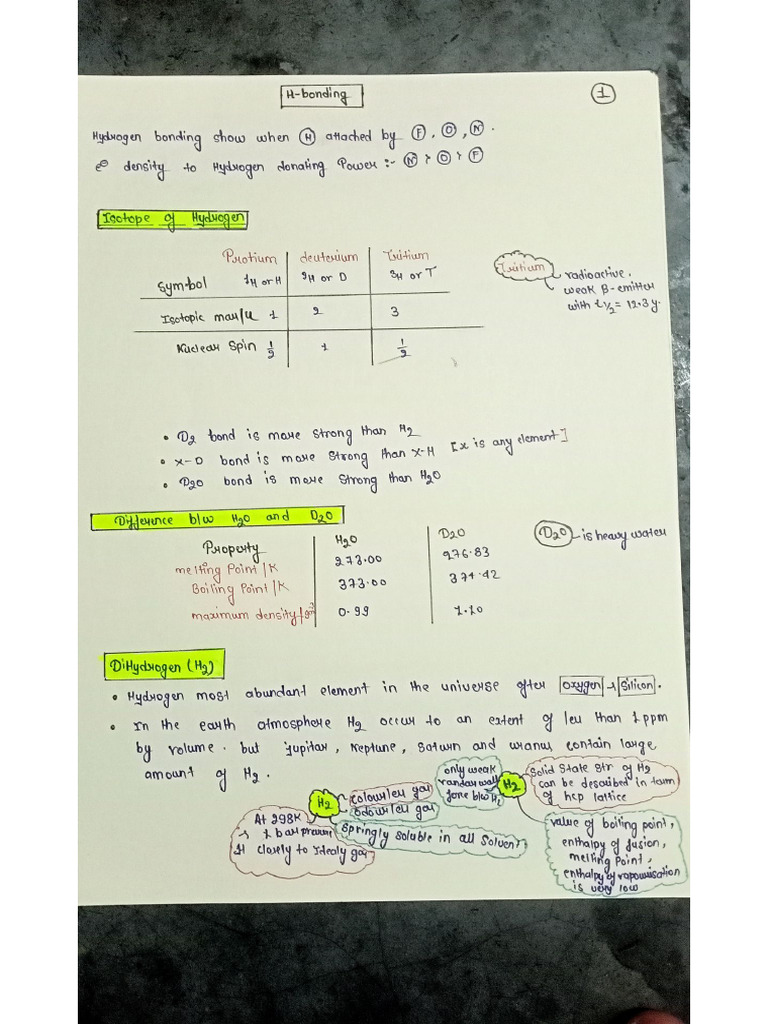 H-bonding
1
Hydrogen bonding show when H attached by F, O, N.
e⊖ density to Hydrogen donating Power :- N > O > F
Isotope of Hydrogen
Protium deuterium Tritium
Symbol ¹H or H ²H or D ³H or T
Isotopic mass/u 1 2 3
Nuclear Spin 1/2 1 1/2
Tritium
radioactive.
weak β-emitter
with t1/2 = 12.3 y.
• D2 bond is more strong than H2
• X-D bond is more strong than X-H [X is any element]
• D2O bond is more strong than H2O
Difference b/w H2O and D2O
Property H2O D2O
melting Point/K 273.00 276.83
Boiling Point/K 373.00 374.42
maximum density/ 0.99 1.10
D2O is heavy water
DiHydrogen (H2)
• Hydrogen most abundant element in the universe after oxygen → Silicon.
• In the earth atmosphere H2 occur to an extent of less than 1 ppm
by volume. but Jupitar, Neptune, Saturn and uranus contain large
amount of H2.
H2
colourless gas
odourless gas
springly soluble in all solvent
At 298K
1 bar pressure
It closely to Idealy gas
H2
only weak
vandar wall
force b/w H2
Solid State Str of H2
can be described in term
of hcp lattice
value of boiling point,
enthalpy of fusion,
melting Point,
enthalpy of vapourisation
is very low